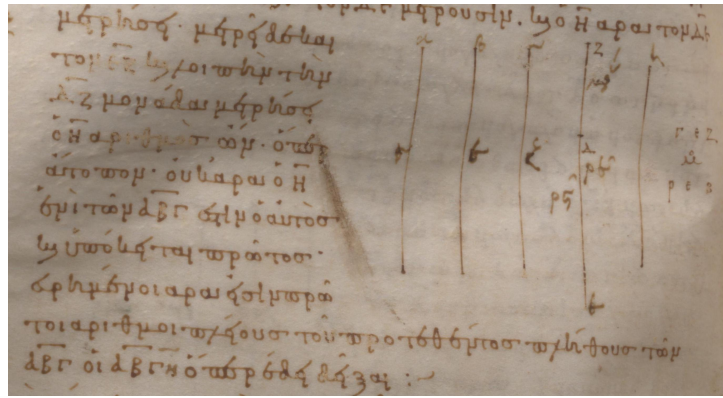 τὸν ΔΕ μετροῦσιν. καὶ ὁ Η ἄρα τὸν ΔΕ
μετρήσει. μετρεῖ δὲ καὶ
τὸν ΕΖ καὶ λοιπὴν τὴν
ΔΖ μονάδα μετρήσει
ὁ Η ἀριθμὸς ὤν. ὅπερ
ἄτοπον. οὐκ ἄρα ὁ Η
ἑνὶ τῶν ΑΒΓ ἐστὶν ὁ αὐτὸς
καὶ ὑπόκειται πρῶτος.
εὑρημένοι ἄρα εἰσὶν πρῶ
τοι ἀριθμοὶ πλείους τοῦ προτεθέντος πλήθους τῶν
ΑΒΓ οἱ ΑΒΓΗ ὅπερ ἔδει δεῖξαι :~